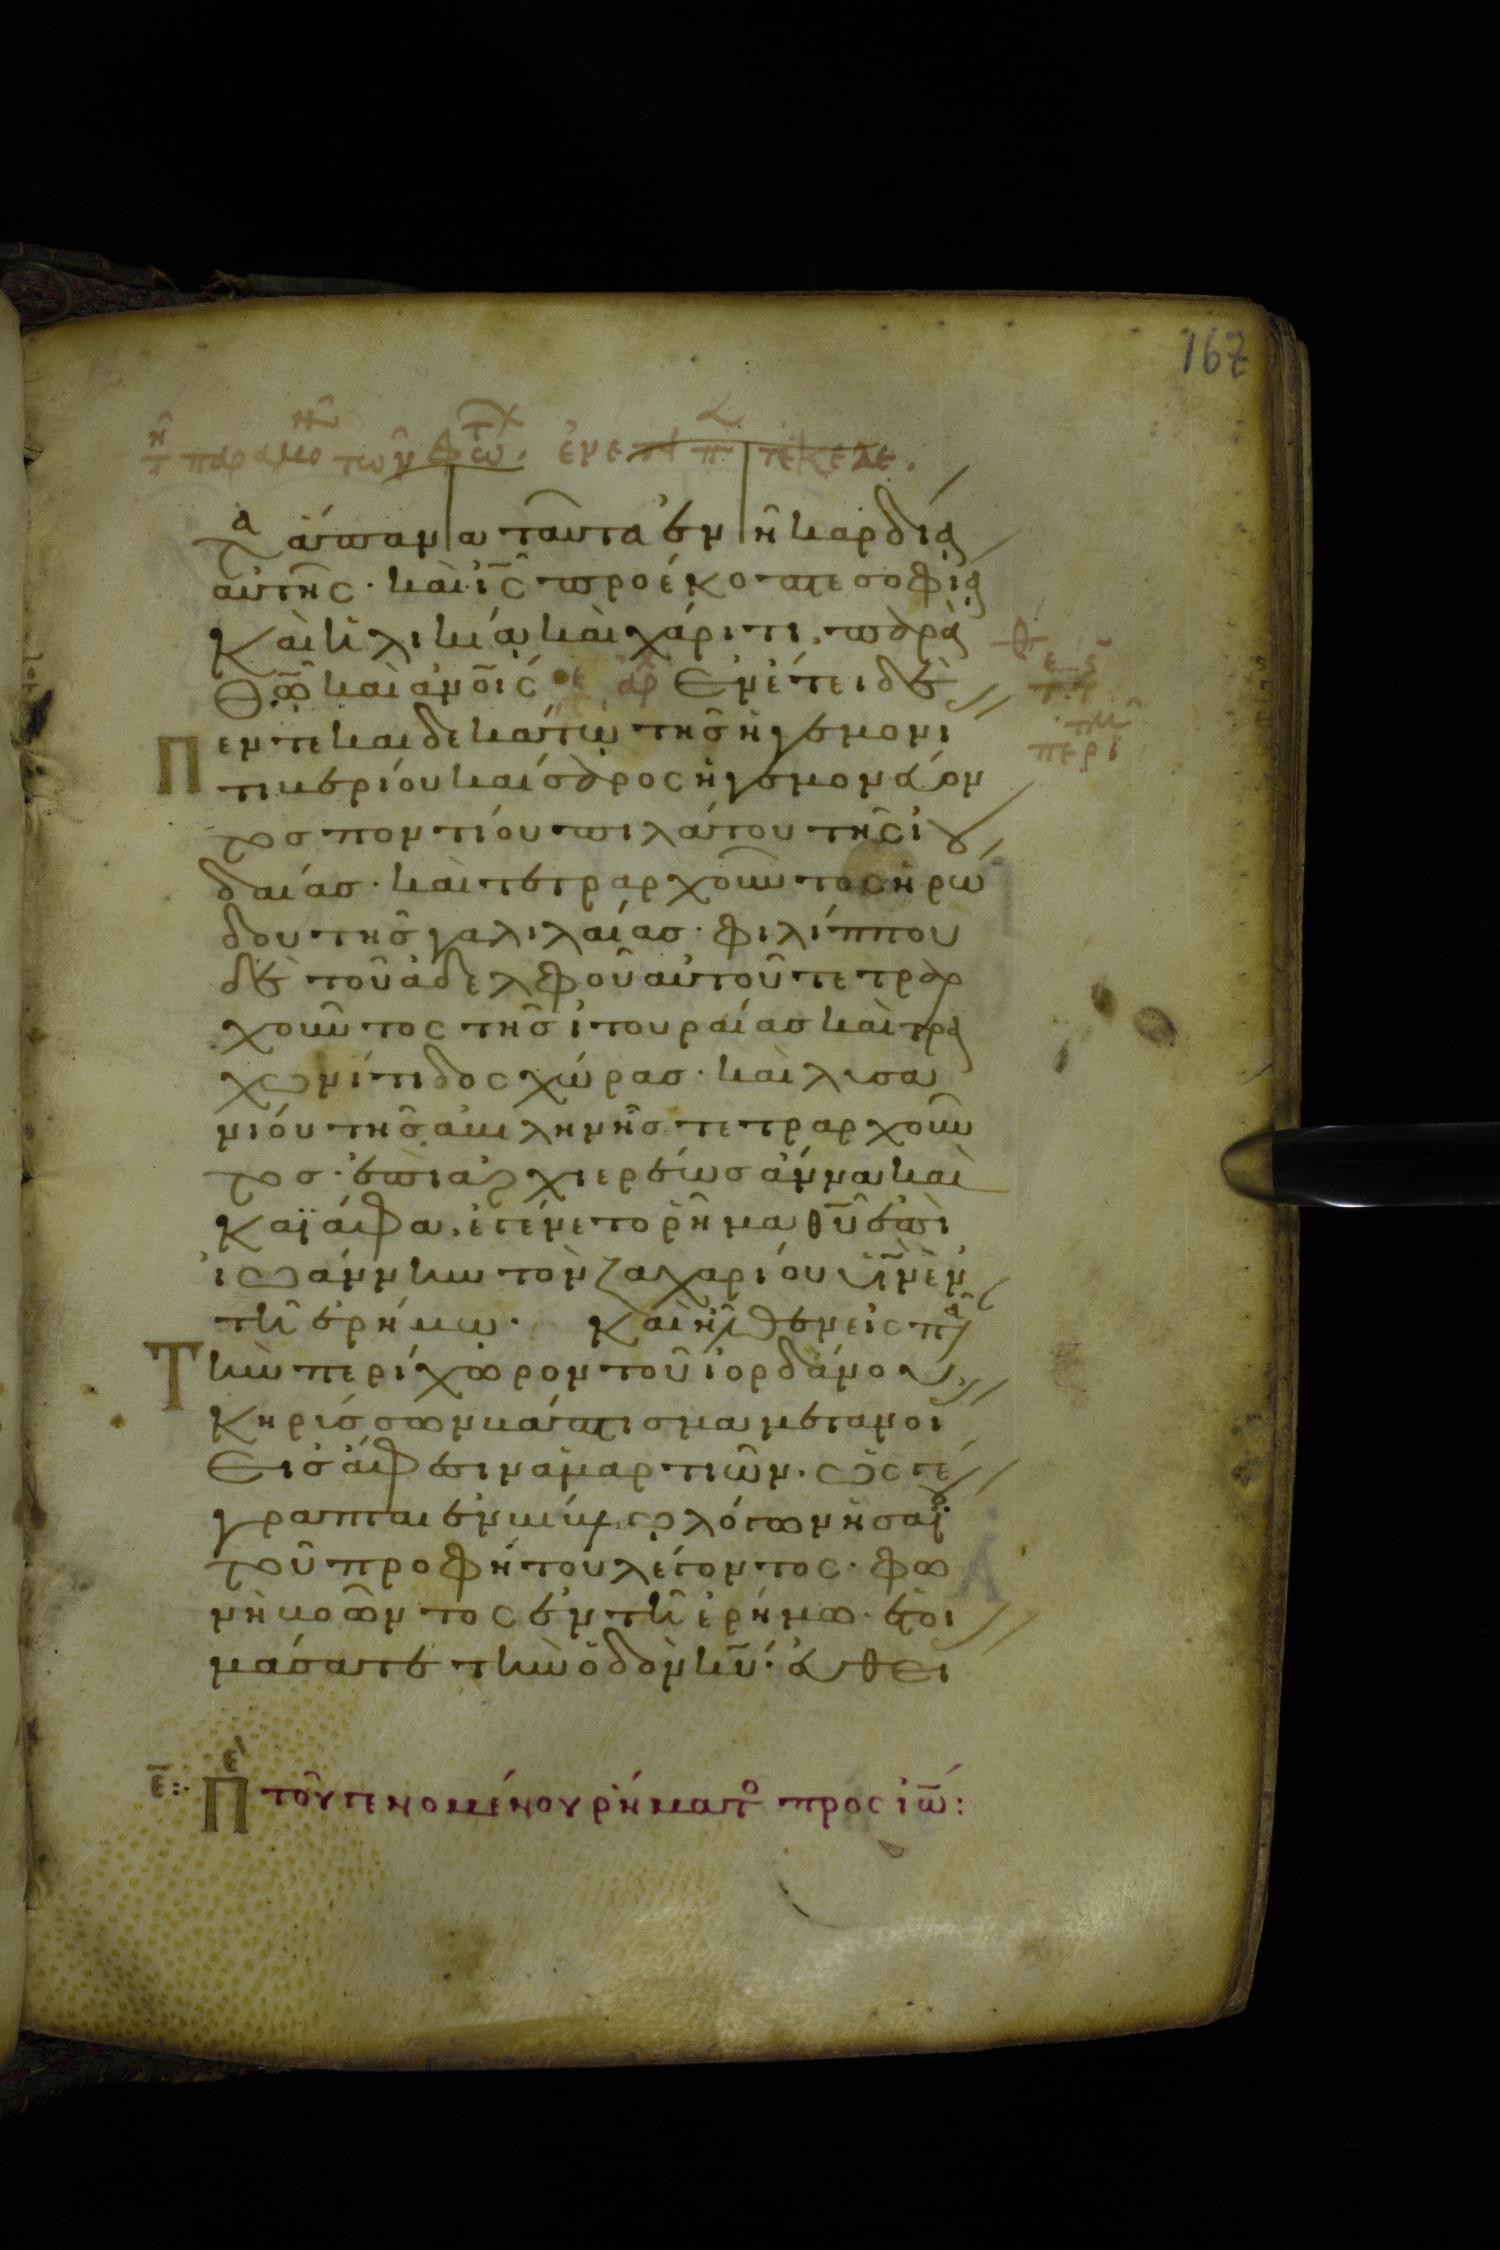 167
τὰ ἅπαντα ταῦτα ἐν τῆ καρδία
αὐτῆς· καὶ ἰς̅ προέκοπτε σοφία
Καὶ ἡλικία καὶ χάριτι, παρὰ
θω̅ καὶ ἀνοις̅ Ἐν ἔτει δὲ
Πεντεκαιδεκάτω τῆς ἡγεμονί
τιβερίου καίσαρος ἡγεμονεύον
τος ποντίου πιλάτου τῆς ἰου
δαίας· καὶ τετραρχοῦντος ἡρώ
δου τῆς γαλιλαίας· φιλίππου
δὲ τοῦ ἀδελφοῦ αὐτοῦ τετραρ
χοῦντος τῆς ἰτουραίας καὶ τρα
χωνίτιδος χώρας· καὶ λυσα
νίου τῆς ἀβιληνῆς τετραρχοῦν
τος· ἐπὶ ἀρχιερέως ἄννα καὶ
Καϊάφα, ἐγένετο ῥῆμα θυ̅ ἐπὶ
ἰωάννην τὸν ζαχαρίου υἱὸν ἐν
τῆ ἐρήμω· Καὶ ἦλθεν εἰς πᾶ
Τὴν περίχωρον τοῦ ἰορδάνου,
Κηρύσσων βάπτισμα μετανοί
Εἰς ἄφεσιν ἁμαρτιῶν· ὡς γέ
γραπται ἐν βίβλω λόγων ἡσαΐου
τοῦ προφήτου λέγοντος· φω
νὴ βοῶντος ἐν τῆ ἐρήμω· ἑτοι
μάσατε τὴν ὁδὸν κυ̅· εὐθεί
ε̅: Πε τοῦ γενομένου ῥήματο πρὸς ἰω̅: